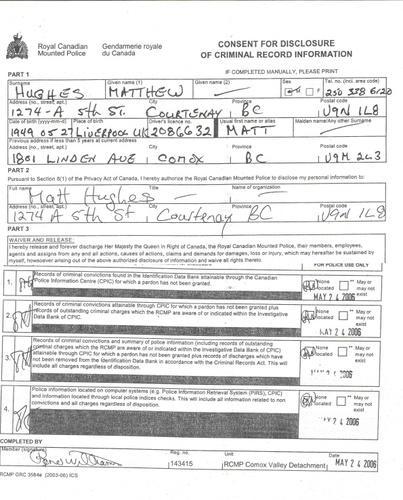 Royal Canadian Gendarmerie royale
Mounted Police du Canada
CONSENT FOR DISCLOSURE
OF CRIMINAL RECORD INFORMATION
PART 1
IF COMPLETED MANUALLY, PLEASE PRINT
Surname Given name (1) Given name (2) Sex Tel. no. (incl. area code)
HUGHES MATTHEW 250 338 6120
Address (no., street, apt.) City Province Postal code
1274-A 5th ST. COURTENAY BC V9N 1L8
Date of birth (yyyy-mm-d) Place of birth Driver's licence no. Usual first name or alias Maiden name/Any other Surname
1949 05 27 LIVERPOOL UK 2086632 MATT
Previous address if less than 5 years at current address
Address (no., street, apt.) City Province Postal code
1801 LINDEN AVE COMOX BC V9M 2L3
PART 2
Pursuant to Section 8(1) of the Privacy Act of Canada, I hereby authorize the Royal Canadian Mounted Police to disclose my personal information to:
Full name Title Name of organization
Matt Hughes
Address (no., street, apt.) City Province Postal code
1274-A 5th ST Courtenay BC V9N 1L8
PART 3
WAIVER AND RELEASE:
I hereby release and forever discharge Her Majesty the Queen in Right of Canada, the Royal Canadian Mounted Police, their members, employees,
agents and assigns from any and all actions, causes of actions, claims and demands for damages, loss or injury, which may hereafter be sustained by
myself, howsoever arising out of the above authorized disclosure of information and waive all rights thereto.
FOR POLICE USE ONLY
1. Records of criminal convictions found in the Identification Data Bank attainable through the Canadian
Police Information Centre (CPIC) for which a pardon has not been granted.
None located ** May or may not exist
MAY 24 2006
2. Records of criminal convictions attainable through CPIC for which a pardon has not been granted plus
records of outstanding criminal charges which the RCMP are aware of or indicated within the Investigative
Data Bank of CPIC.
None located ** May or may not exist
MAY 24 2006
3. Records of criminal convictions and summary of police information (including records of outstanding
criminal charges which the RCMP are aware of or indicated within the Investigative Data Bank of CPIC)
attainable through CPIC for which a pardon has not been granted plus records of discharges which have
not been removed from the Identification Data Bank in accordance with the Criminal Records Act. This will
include all charges regardless of disposition.
None located ** May or may not exist
MAY 24 2006
4. Police information located on computer systems (e.g. Police Information Retrieval System (PIRS), CPIC)
and Information located through local police indices checks. This will include all information related to non
convictions and all charges regardless of disposition.
None located ** May or may not exist
MAY 24 2006
COMPLETED BY
Member (signature) Reg. no. Unit Date
143415 RCMP Comox Valley Detachment MAY 24 2006
RCMP GRC 3584e (2003-06) ICS